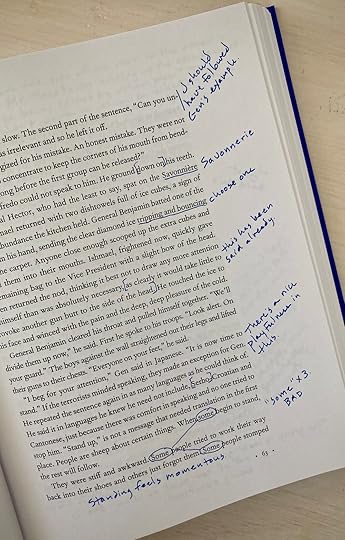 I should
have followed
Gen's example.
slow. The second part of the sentence, "Can you un-
as irrelevant and so he left it off.
gized for his mistake. An honest mistake. They were
concentrate to keep the corners of his mouth from bend-
ong before the first group can be released?"
fredo could not speak to him. He ground down on his teeth.
al Hector, who had the least to say, spat on the Savonnière
Savonnerie
mael returned with two dishtowels full of ice cubes, a sign of
bundance the kitchen held. General Benjamin batted one of the
n his hand, sending the clear diamond ice tripping and bouncing
choose one
e carpet. Anyone close enough scooped up the extra cubes and
d them into their mouths. Ishmael, frightened now, quickly gave
emaining bag to the Vice President with a slight bow of the head.
en returned the nod, thinking it best not to draw any more attention
himself than was absolutely necessary, as clearly it would take little to
this has been
said already.
rovoke another gun butt to the side of the head. He touched the ice to
his face and winced with the pain and the deep, deep pleasure of the cold.
General Benjamin cleared his throat and pulled himself together. "We'll
divide them up now," he said. First he spoke to his troops. "Look alert. On
your guard." The boys against the wall straightened out their legs and lifted
their guns to their chests. "Everyone on your feet," he said.
There's a nice
playfulness in
this
"I beg for your attention," Gen said in Japanese. "It is now time to
stand." If the terrorists minded speaking, they made an exception for Gen.
He repeated the sentence again in as many languages as he could think of.
He said it in languages he knew he need not include, Serbo-Croatian and
Cantonese, just because there was comfort in speaking and no one tried to
stop him. "Stand up," is not a message that needed translation in the first
place. People are sheep about certain things. When some begin to stand,
the rest will follow.
"some" x3.
BAD
They were stiff and awkward. Some people tried to work their way
back into their shoes and others just forgot them. Some people stomped
· 63 ·
Standing feels momentous